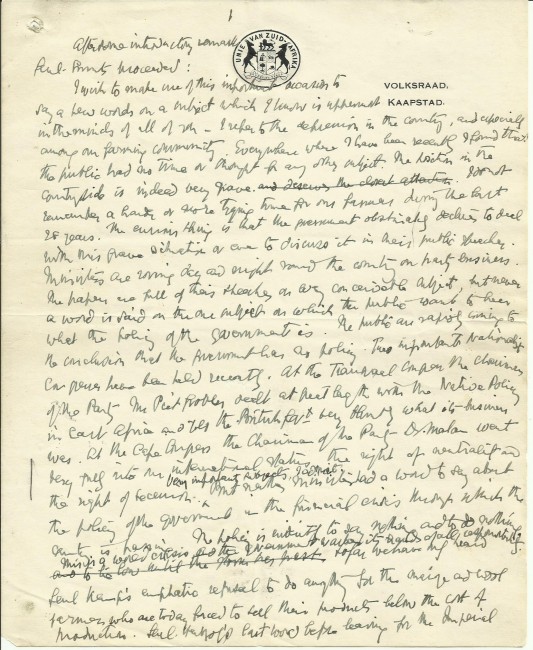 1
UNIE VAN ZUID-AFRIKA
VOLKSRAAD,
KAAPSTAD.
After some introductory remarks
Genl. Smuts proceeded:
I wish to make use of this important occasion to
say a few words on a subject which I know is uppermost
in the minds of all of you – I refer to the depression in the country, and especially
among our farming community. Everywhere where I have been recently I found that
the public had no time or thought for any other subject. The position in the
countryside is indeed very grave and deserves the closest attention. I do not
remember a harder or more trying time for our farmers during the last
28 years. The curious thing is that the government obstinately declines to deal
with this grave situation or even to discuss it in their public speeches.
Ministers are roving day and night round the country on party business.
The papers are full of their speeches on every conceivable subject, but never
a word is said on the one subject on which the public want to hear
what the policy of the government is. The public are rapidly coming to
the conclusion that the government has no policy. Two important Nationalist
Congresses have been held recently. At the Transvaal Congress the Chairman
of the Party Mr Piet Grobler dealt at great length with the Native Policy
in East Africa and told the British Govt very bluntly what its business
was. At the Cape Congress the Chairman of the Party Dr. Malan went
very fully into our international status, the right of neutrality and
the right of secession. very important subjects, But neither Minister had a word to say about
the policy of the government in the financial crisis through which the
country is passing. The policy is evidently to say nothing and to do nothing
This is a world crisis and the government washes its hands of all responsibility.
and to lie low until the storm has past So far we have only heard
Genl Kemp's emphatic refusal to do anything for the maize and wool
farmers who are today forced to sell their products below the cost of
production. Genl. Hertzog's last word before leaving for the Imperial